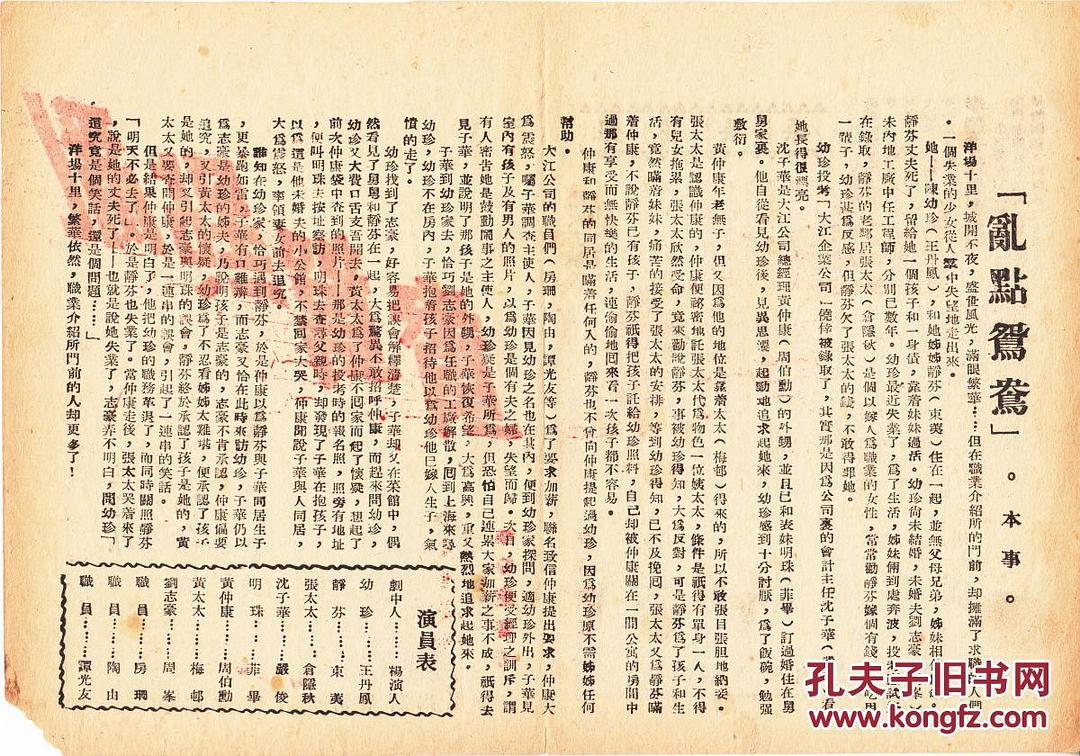 「亂點鴛鴦」。本事。
洋場十里，城開不夜，盛世風光，滿眼繁華……但在職業介紹所的門前，却擁滿了求職的人們
。一個失業的少女從人羣中失望地走出來。
她——陳幼珍（王丹鳳），和她姊姊靜芬（束夷）住在一起，並無父母兄弟，姊妹相依
靜芬丈夫死了，留給她一個孩子和一身債，靠着妹妹過活。幼珍尚未結婚，未婚夫劉志豪
未內地工廠中任工程師，分別已數年。幼珍最近失業了，爲了生活，姊妹倆到處奔波，投考
在錄取，靜芬的老鄰居張太太（倉隱秋）是個以嫁人爲職業的女性，常常勸靜芬嫁個有錢
一輩子，幼珍甚爲反感，但靜芬欠了張太太的錢，不敢得罪她。
幼珍投考「大江企業公司」僥倖被錄取了，其實那是因爲公司裏的會計主任沈子華（嚴 看
她長得很漂亮。
沈子華是大江公司總經理黃仲康（周伯勳）的外甥，並且已和表妹明珠（菲畢）訂過婚住在舅
舅家裏。他自從看見幼珍後，見異思遷，起勁地追求起她來，幼珍感到十分討厭，爲了飯碗，勉强
敷衍。
黃仲康年老無子，但又因爲他的地位是靠着太太（梅邨）得來的，所以不敢張目張胆地納妾
張太太是認識仲康的，仲康便祕密地託張太太代爲物色一位姨太太，條件是祇得有單身一人，不得
有兒女拖累，張太太欣然受命，竟來勸說靜芬，事被幼珍得知，大爲反對，可是靜芬爲了孩子和生
活，竟然瞞着妹妹，痛苦的接受了張太太的安排，等到幼珍得知，已不及挽囘，張太太又爲靜芬瞞
着仲康，不說靜芬已有孩子，靜芬祇得把孩子託給幼珍照料，自己却被仲康關在一間公寓的房間中
過那有享受而無快樂的生活，連偷偷地囘來看一次孩子都不容易。
仲康和靜芬的同居是瞞着任何人的，靜芬也不曾向仲康提起過幼珍，因爲幼珍原不需姊姊任何
幫助。
大江公司的職員們（房珊，陶由，譚光友等）爲了要求加薪，聯名致信仲康提出要求，仲康大
爲震怒，囑子華調查主使人，子華因見幼珍之名也在其內，便到幼珍家探問，適幼珍外出，子華見
室內有孩子及有男人的照片，以爲幼珍是個有夫之婦，失望而歸。次日，幼珍便受經理之訓斥，謂
有人密吿她是鼓動鬧事之主使人，幼珍疑是子華所爲，但恐怕自己連累大家加薪之事不成，祇得去
見子華，並說明了那孩子是她的外甥，子華恢復希望，大爲高興，重又熱烈地追求起她來。
子華到幼珍家去，恰巧劉志豪因爲任職的工廠解散，囘到上海來尋
幼珍，幼珍不在房內，子華抱着孩子招待他以爲幼珍他已嫁人生子，氣
憤的走了。
幼珍找到了志豪，好容易把誤會解釋清楚，子華却又在菜館中，偶
然看見了舅舅和靜芬在一起，大爲驚異不敢招呼仲康，而起來問幼珍，
幼珍又大費口舌支吾開去，黃太太爲了仲康不囘家而起了懷疑，想起了
前次仲康袋中查到的照片——那是幼珍的投考時的報名照，照旁有地址
，便叫明珠去按址察訪，明珠去查尋父親時，却發現了子華在抱孩子，
以爲這是他未婚夫的小公館，不禁囘家大哭，仲康聞說子華與人同居，
大爲震怒，率領妻女前去追究。
誰知在幼珍家，恰巧遇到靜芬，於是仲康以爲靜芬與子華同居生子
，更暴跑如雷，子華有口難辯，而志豪又恰在此時來訪幼珍，子華仍以
爲志豪是幼珍的姊夫，乃說孩子是志豪的，志豪不肯承認，仲康偏要
追究，又引黃太太的懷疑，幼珍爲了不忍看姊姊太難堪，便承認了孩子
是她的，却又引起志豪與明珠的誤會，靜芬終於承認了孩子是她的，黃
太太又要查問仲康，於是一連串的誤會，引起了一連串的笑話。
但是結果仲康是明白了，他把幼珍的職務革退了，而同時關照靜芬
「明天不必去了」。於是靜芬也失業了。當仲康走後，張太太哭着來了
，說是她的丈夫死了——也就是說她失業了，志豪弄不明白，問幼珍「
這究竟是個笑話，還是個問題……」
洋場十里，繁華依然，職業介紹所門前的人却更多了！
演員表
劇中人……楊演人
幼珍……王丹鳳
靜芬……束夷
張太太……倉隱秋
沈子華……嚴俊
明珠……菲畢
黃仲康……周伯勳
黃太太……梅邨
劉志豪……周峯
職員……房珊
職員……陶由
職員……譚光友
孔夫子旧书网
www.kongfz.com